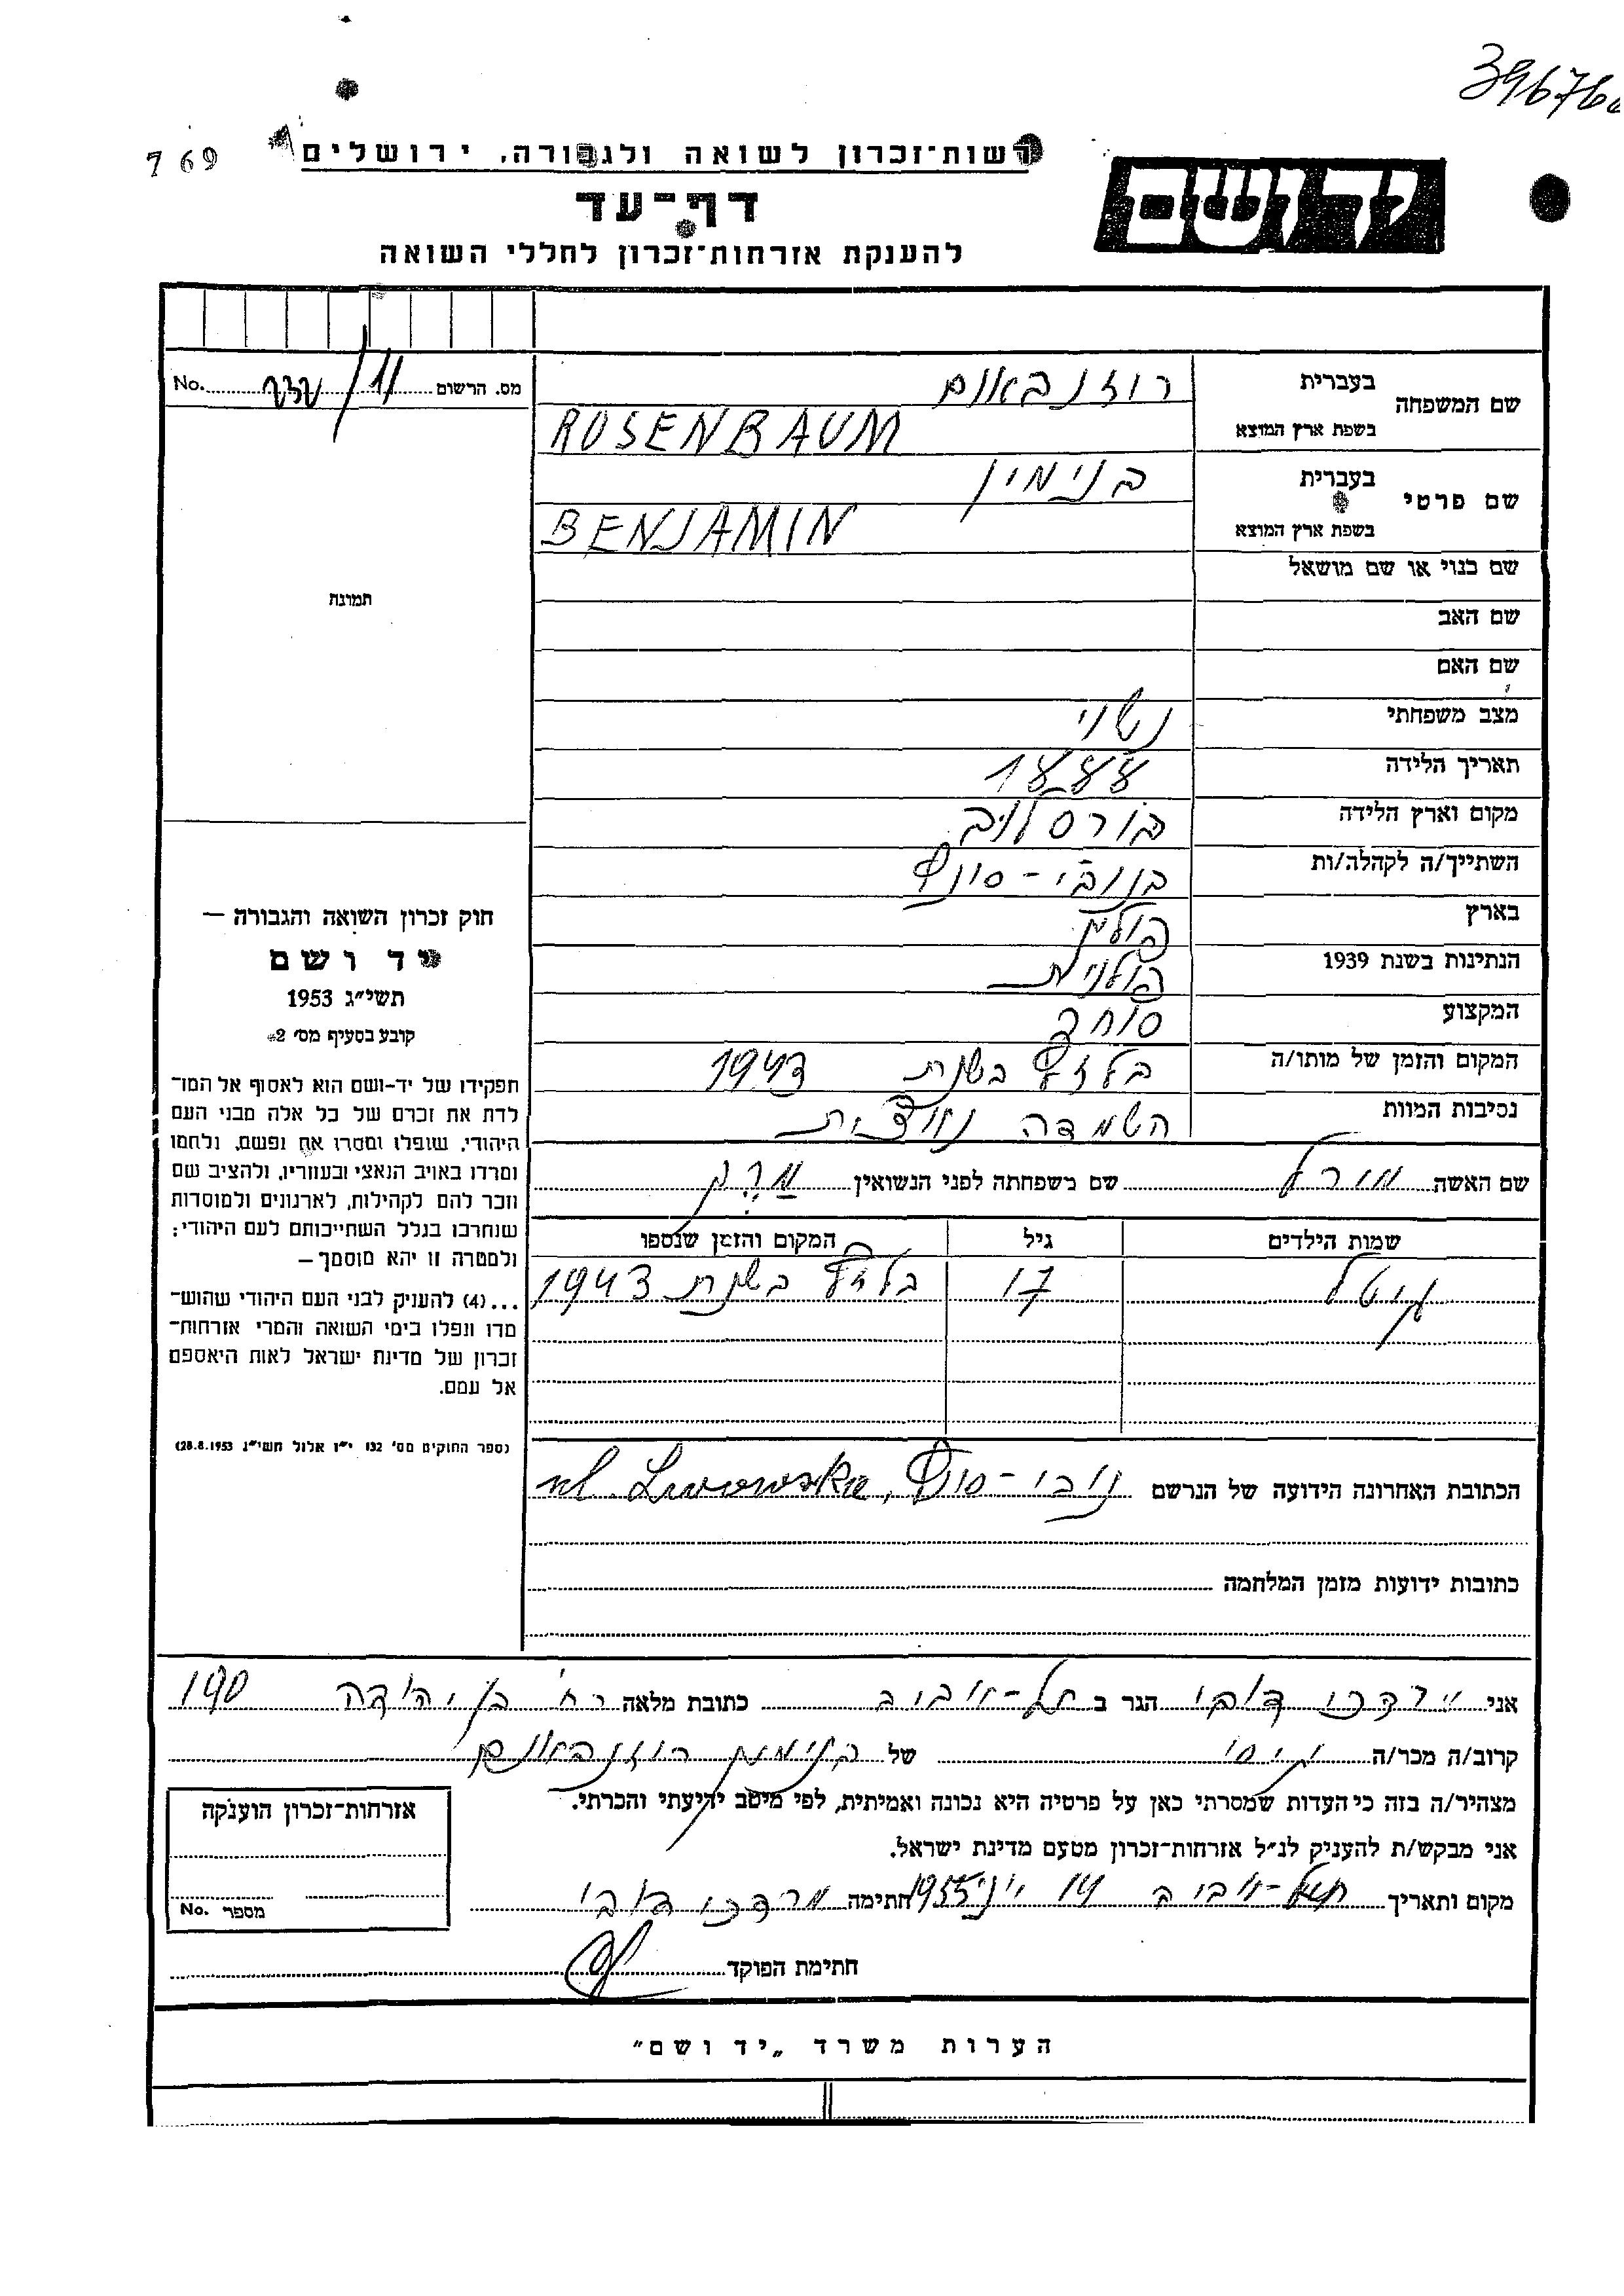 396760
7 69
רשות־זכרון לשואה ולגבורה, ירושלים
יד ושם
דף־עד
להענקת אזרחות־זכרון לחללי השואה
מס. הרשום 11/ No.
שם המשפחה
בעברית רוזנבאום
בשפת ארץ המוצא ROSENBAUM
שם פרטי
בעברית בנימין
בשפת ארץ המוצא BENJAMIN
שם כנוי או שם מושאל
שם האב
שם האם
מצב משפחתי נשוי
תאריך הלידה 1888
מקום וארץ הלידה
השתייך/ה לקהלה/ות
בארץ פולין
הנתינות בשנת 1939 פולנית
המקצוע סוחר
המקום והזמן של מותו/ה בלזץ בשנת 1943
נסיבות המוות השמדה נאצית
שם האשה שם משפחתה לפני הנשואין
שמות הילדים גיל המקום והזמן שנספו
איטל 17 בלזץ בשנת 1943
הכתובת האחרונה הידועה של הנרשם נובי-סונץ, ul. Lwowska
כתובות ידועות מזמן המלחמה
תמונה
חוק זכרון השואה והגבורה —
יד ושם
תשי״ג 1953
קובע בסעיף מס׳ 2
תפקידו של יד-ושם הוא לאסוף אל המו־
לדת את זכרם של כל אלה מבני העם
היהודי, שנפלו ומסרו את נפשם, נלחמו
ומרדו באויב הנאצי ובעוזריו, ולהציב שם
וזכר להם לקהילות, לארגונים ולמוסדות
שנחרבו בגלל השתייכותם לעם היהודי;
ולמטרה זו יהא מוסמך—
...(4) להעניק לבני העם היהודי שהוש־
מדו ונפלו בימי השואה והמרי אזרחות־
זכרון של מדינת ישראל לאות היאספם
אל עמם.
(ספר החוקים מס׳ 132 י״ז אלול תשי״ג 28.8.1953)
אני מרדכי דובי הגר ב תל-אביב כתובת מלאה רח׳ בן יהודה 190
קרוב/ה מכר/ה גיסו של בנימין רוזנבאום
מצהיר/ה בזה כי העדות שמסרתי כאן על פרטיה היא נכונה ואמיתית, לפי מיטב ידיעתי והכרתי.
אני מבקש/ת להעניק לנ״ל אזרחות־זכרון מטעם מדינת ישראל.
מקום ותאריך תל-אביב 14 יוני 1955 חתימה מרדכי דובי
חתימת הפוקד
אזרחות־זכרון הוענקה
מספר No.
הערות משרד „יד ושם״